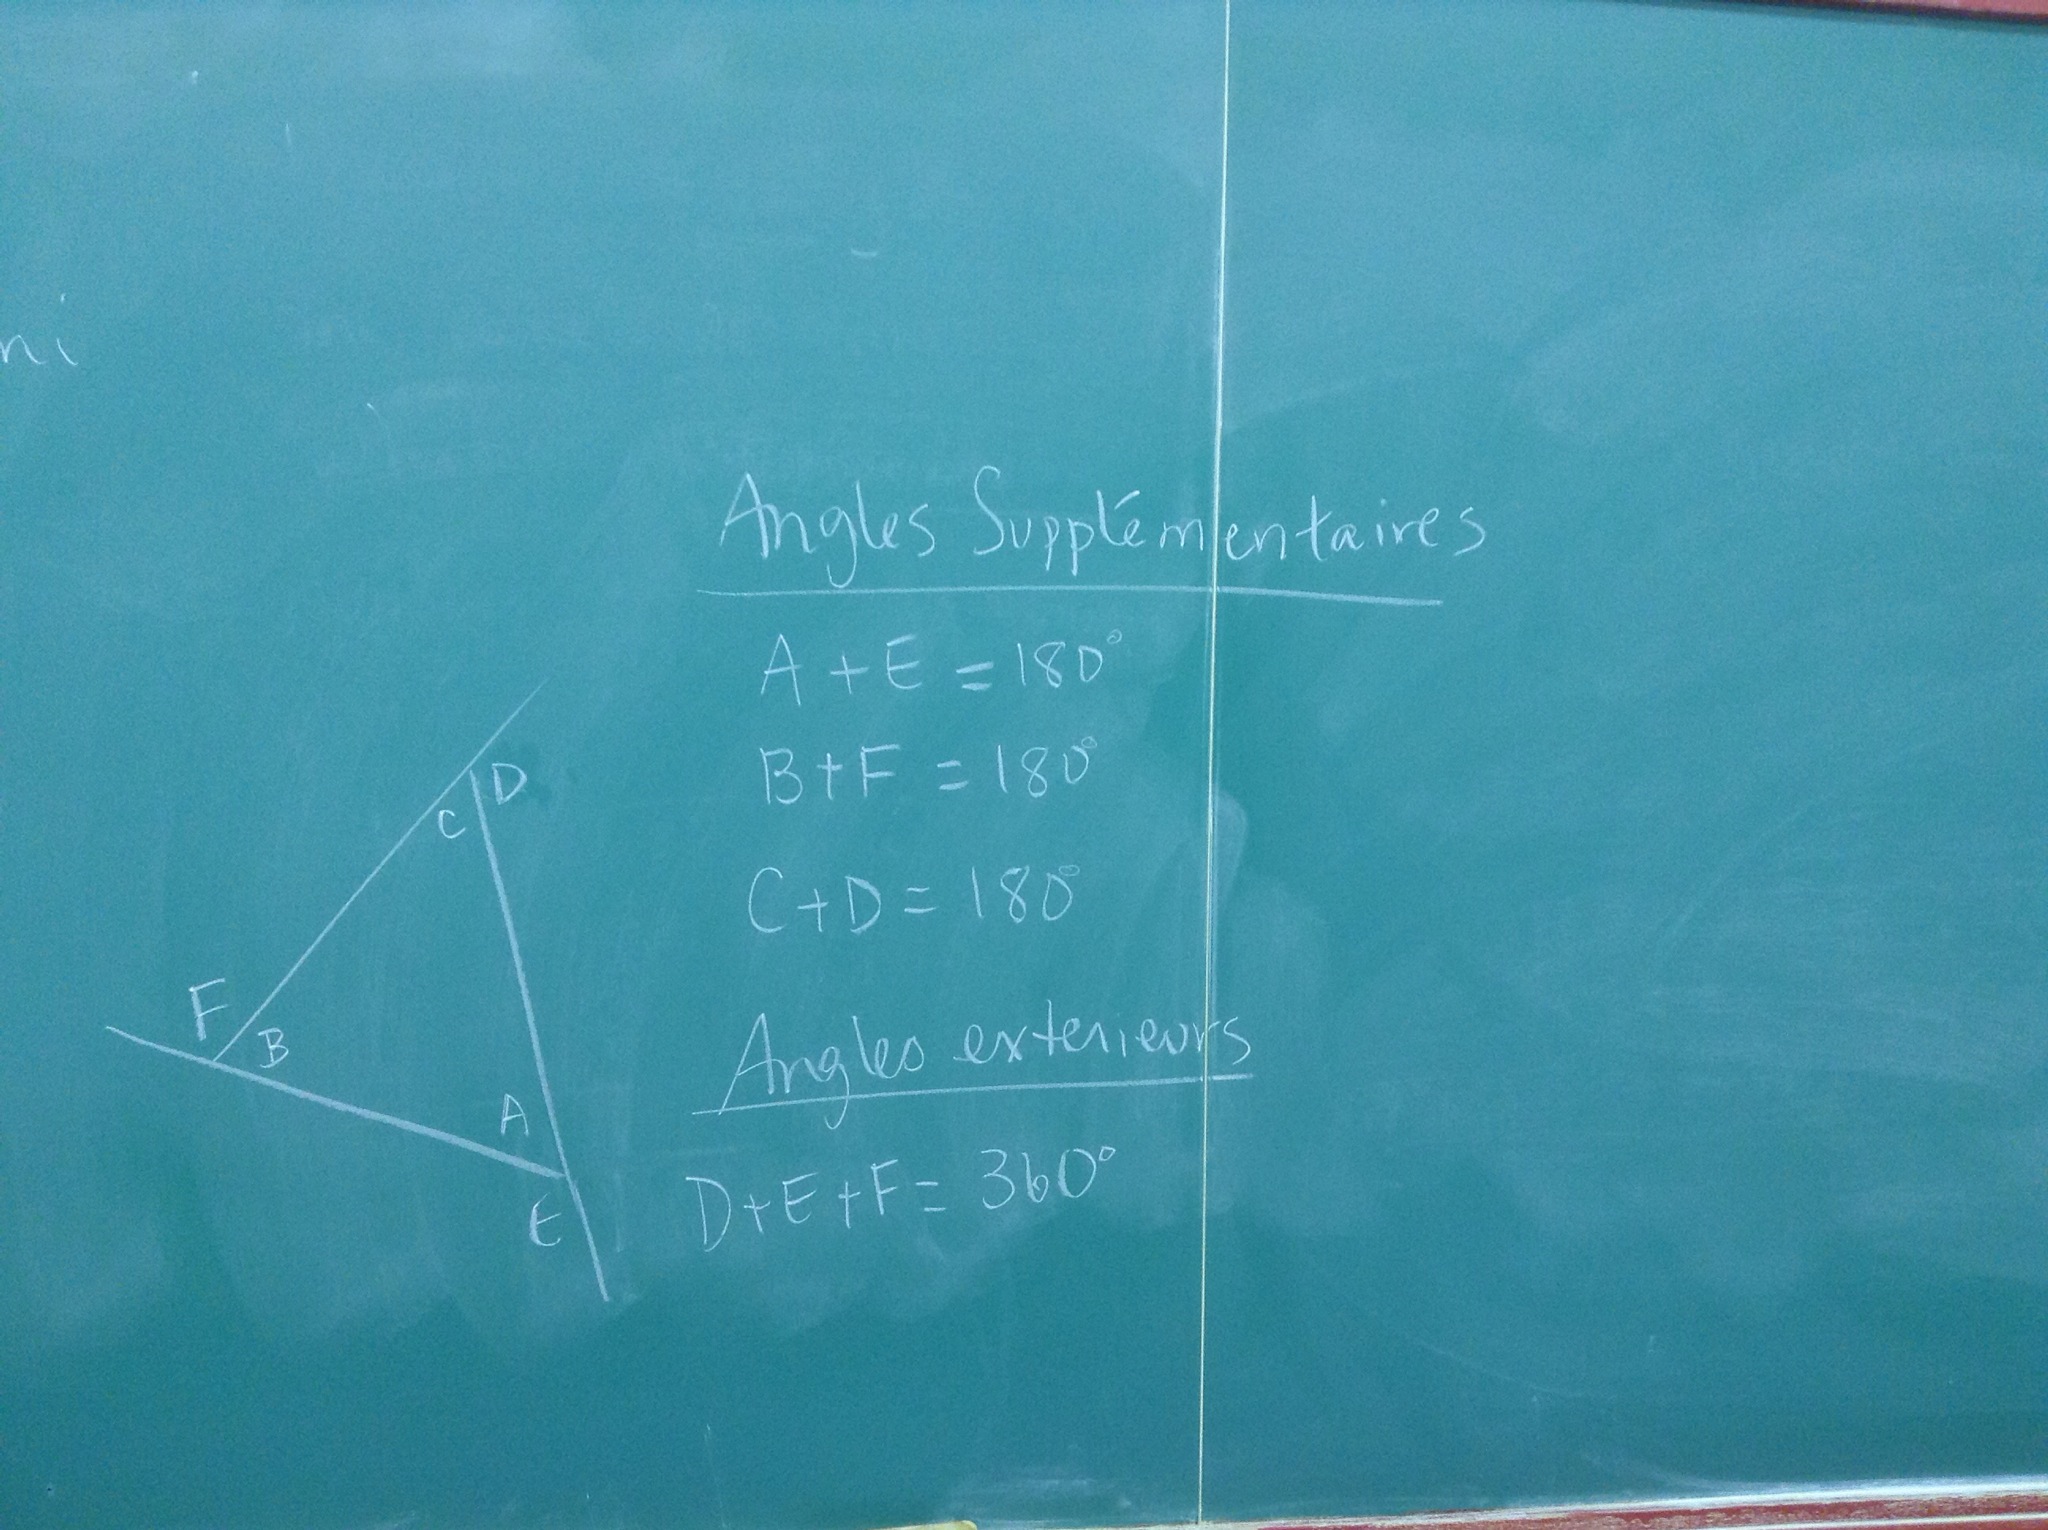 ni
Angles Supplémentaires
A + E = 180°
B + F = 180°
C + D = 180°
Angles exterieurs
D + E + F = 360°
D
C
F
B
A
E